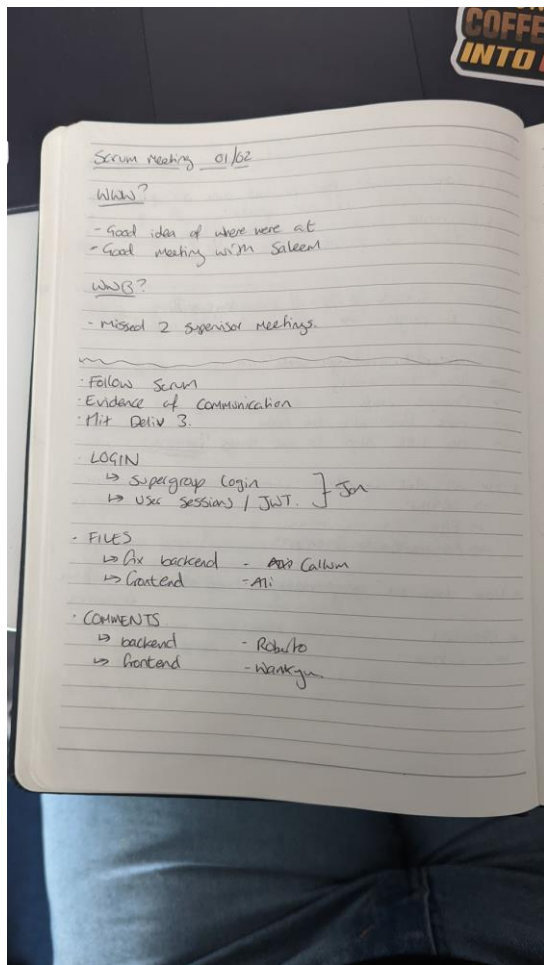 COFFE
INTO
Scrum Meeting 01/02
WWW?
- Good idea of where were at
- Good meeting with Saleem
WWB?
- Missed 2 supervisor meetings.
· Follow Scrum
· Evidence of communication
· Hit Deliv 3.
· LOGIN
↳ Supergroup Login
↳ User sessions / JWT. } Jon
· FILES
↳ fix backend - Callum
↳ frontend - Ali
· COMMENTS
↳ backend - Roberto
↳ frontend - Wankyu